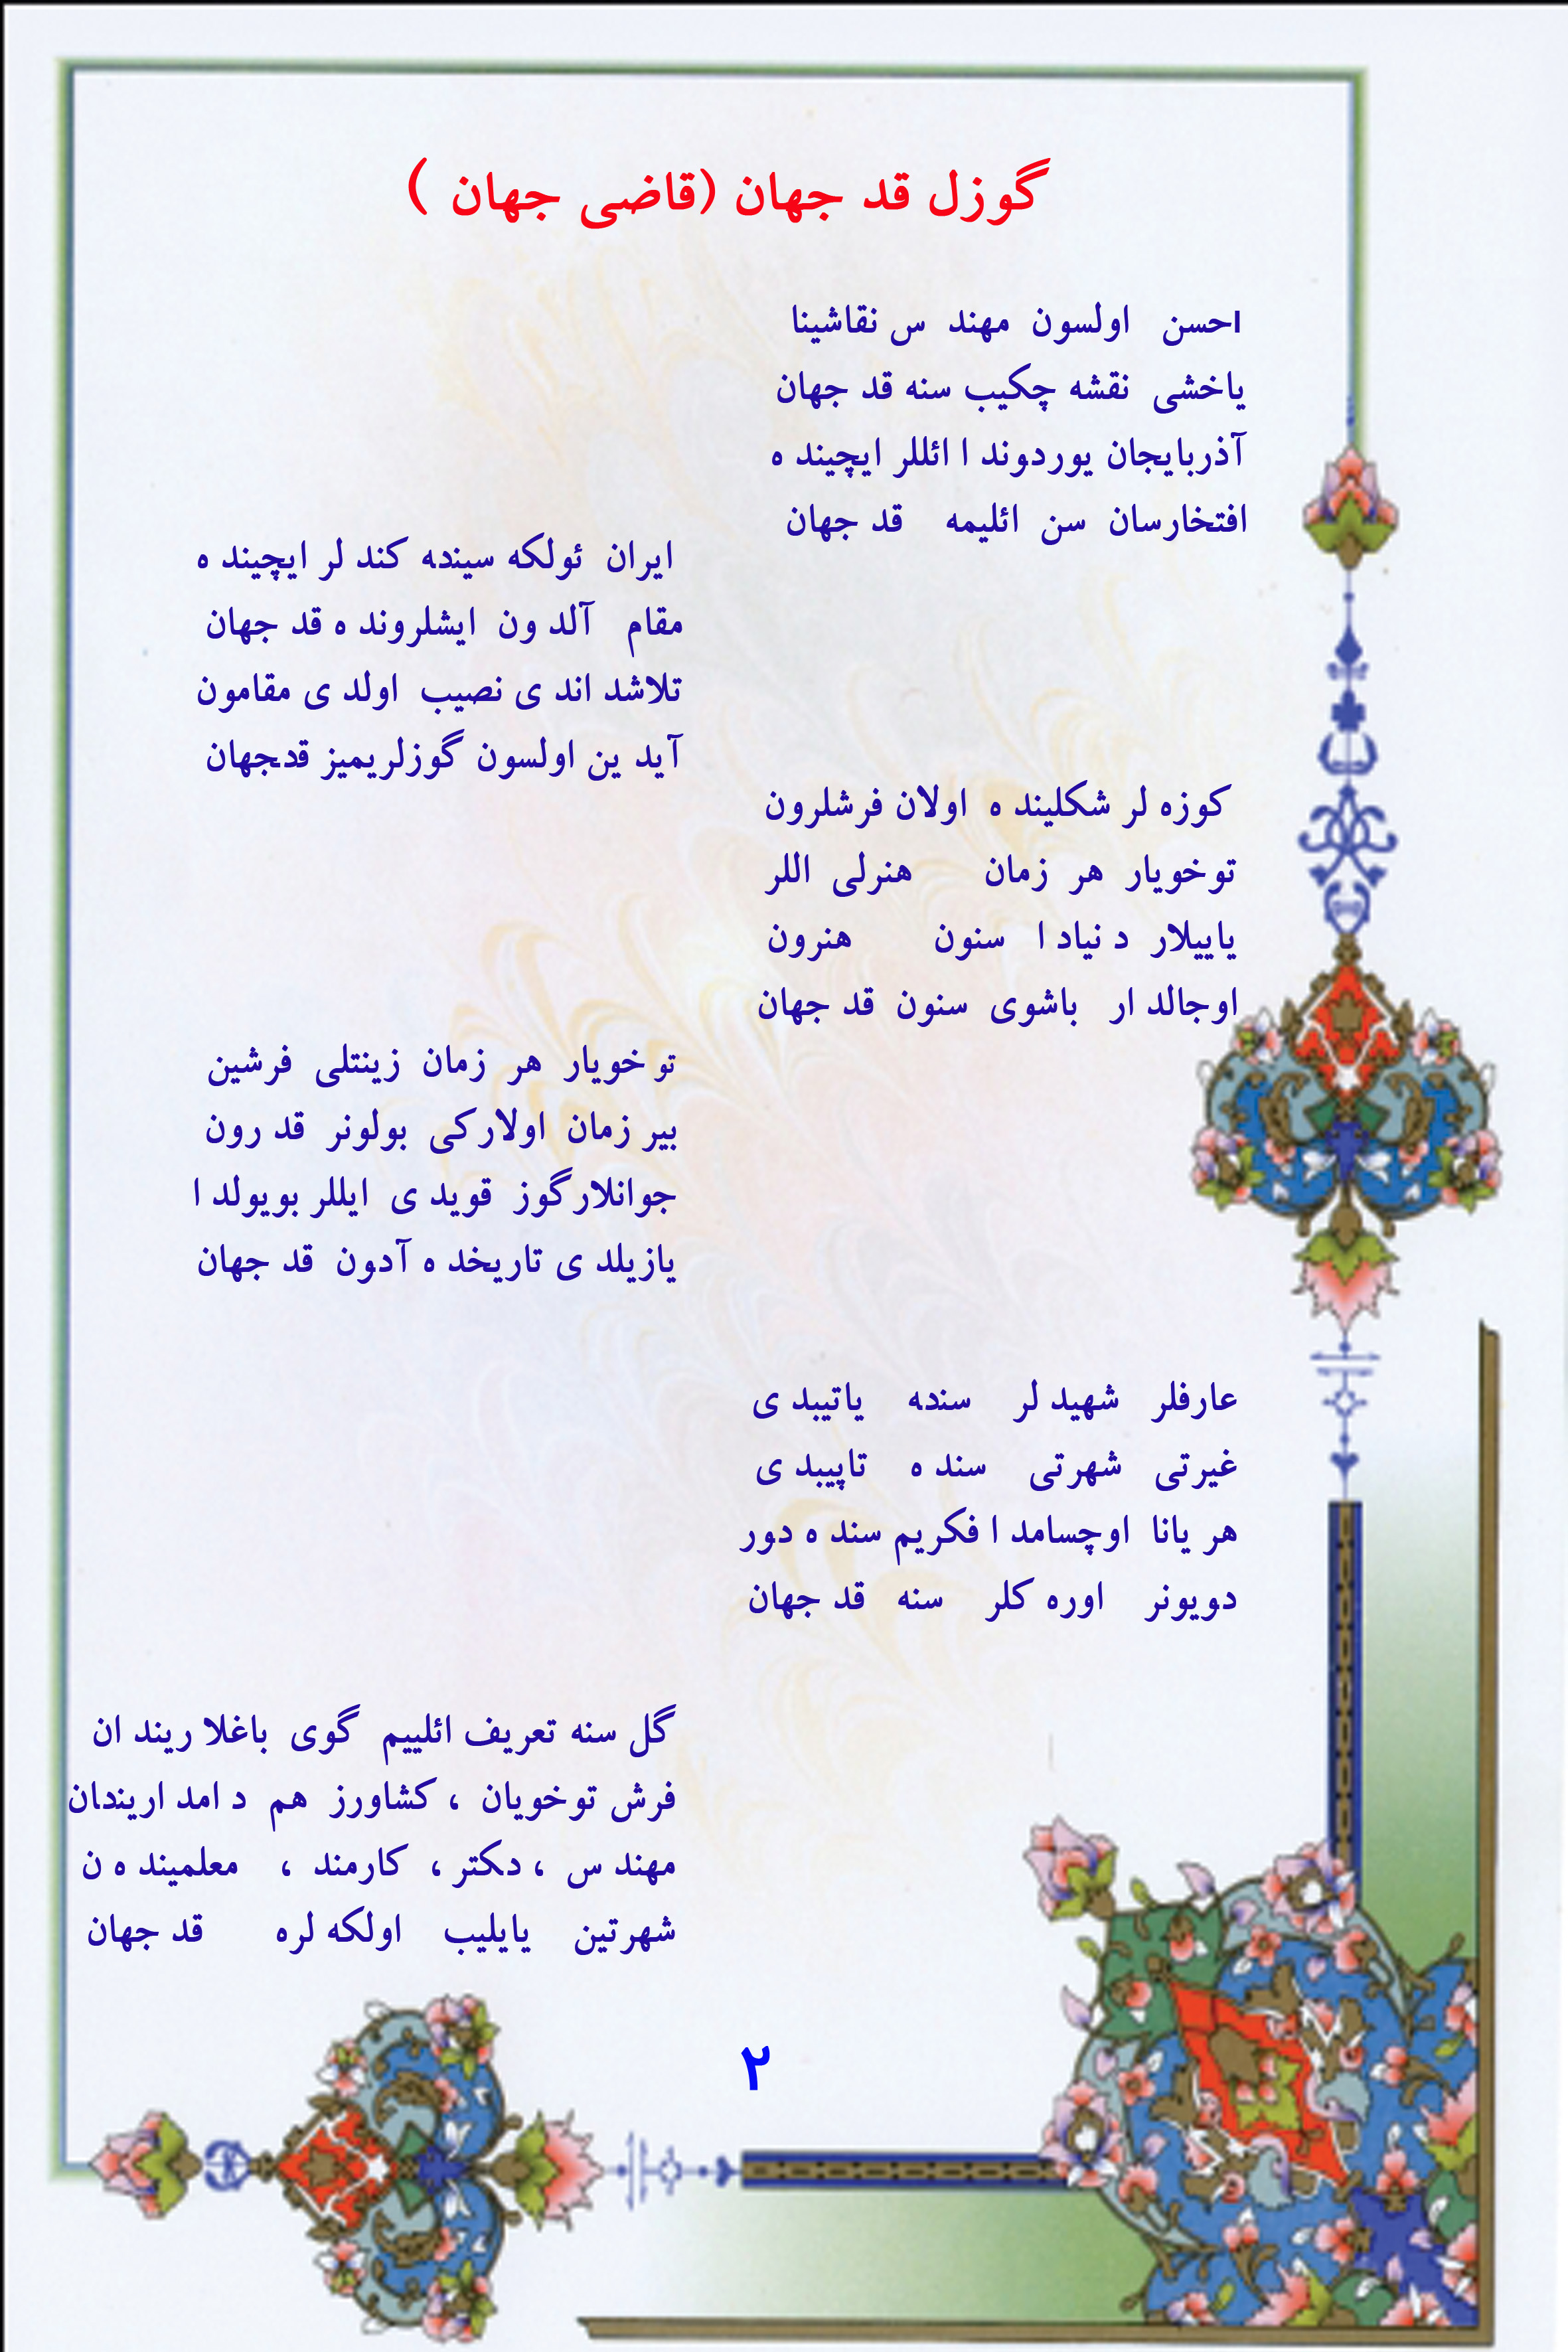 گوزل قد جهان (قاضی جهان )
احسن اولسون مهند س نقاشینا
یاخشی نقشه چکیب سنه قد جهان
آذربایجان یوردوند ا ائللر ایچیند ه
افتخارسان سن ائلیمه قد جهان
ایران ئولکه سینده کند لر ایچیند ه
مقام آلد ون ایشلروند ه قد جهان
تلاشد اند ی نصیب اولد ی مقامون
آید ین اولسون گوزلریمیز قدجهان
کوزه لر شکلیند ه اولان فرشلرون
توخویار هر زمان هنرلی اللر
یاییلار د نیاد ا سنون هنرون
اوجالد ار باشوی سنون قد جهان
تو خویار هر زمان زینتلی فرشین
بیر زمان اولارکی بولونر قد رون
جوانلارگوز قوید ی ایللر بویولد ا
یازیلد ی تاریخد ه آدون قد جهان
عارفلر شهید لر سنده یاتیبد ی
غیرتی شهرتی سند ه تاپیبد ی
هر یانا اوچسامد ا فکریم سند ه دور
دویونر اوره کلر سنه قد جهان
گل سنه تعریف ائلییم گوی باغلا ریند ان
فرش توخویان ، کشاورز هم د امد اریندان
مهند س ، دکتر ، کارمند ، معلمیند ه ن
شهرتین یایلیب اولکه لره قد جهان
۲